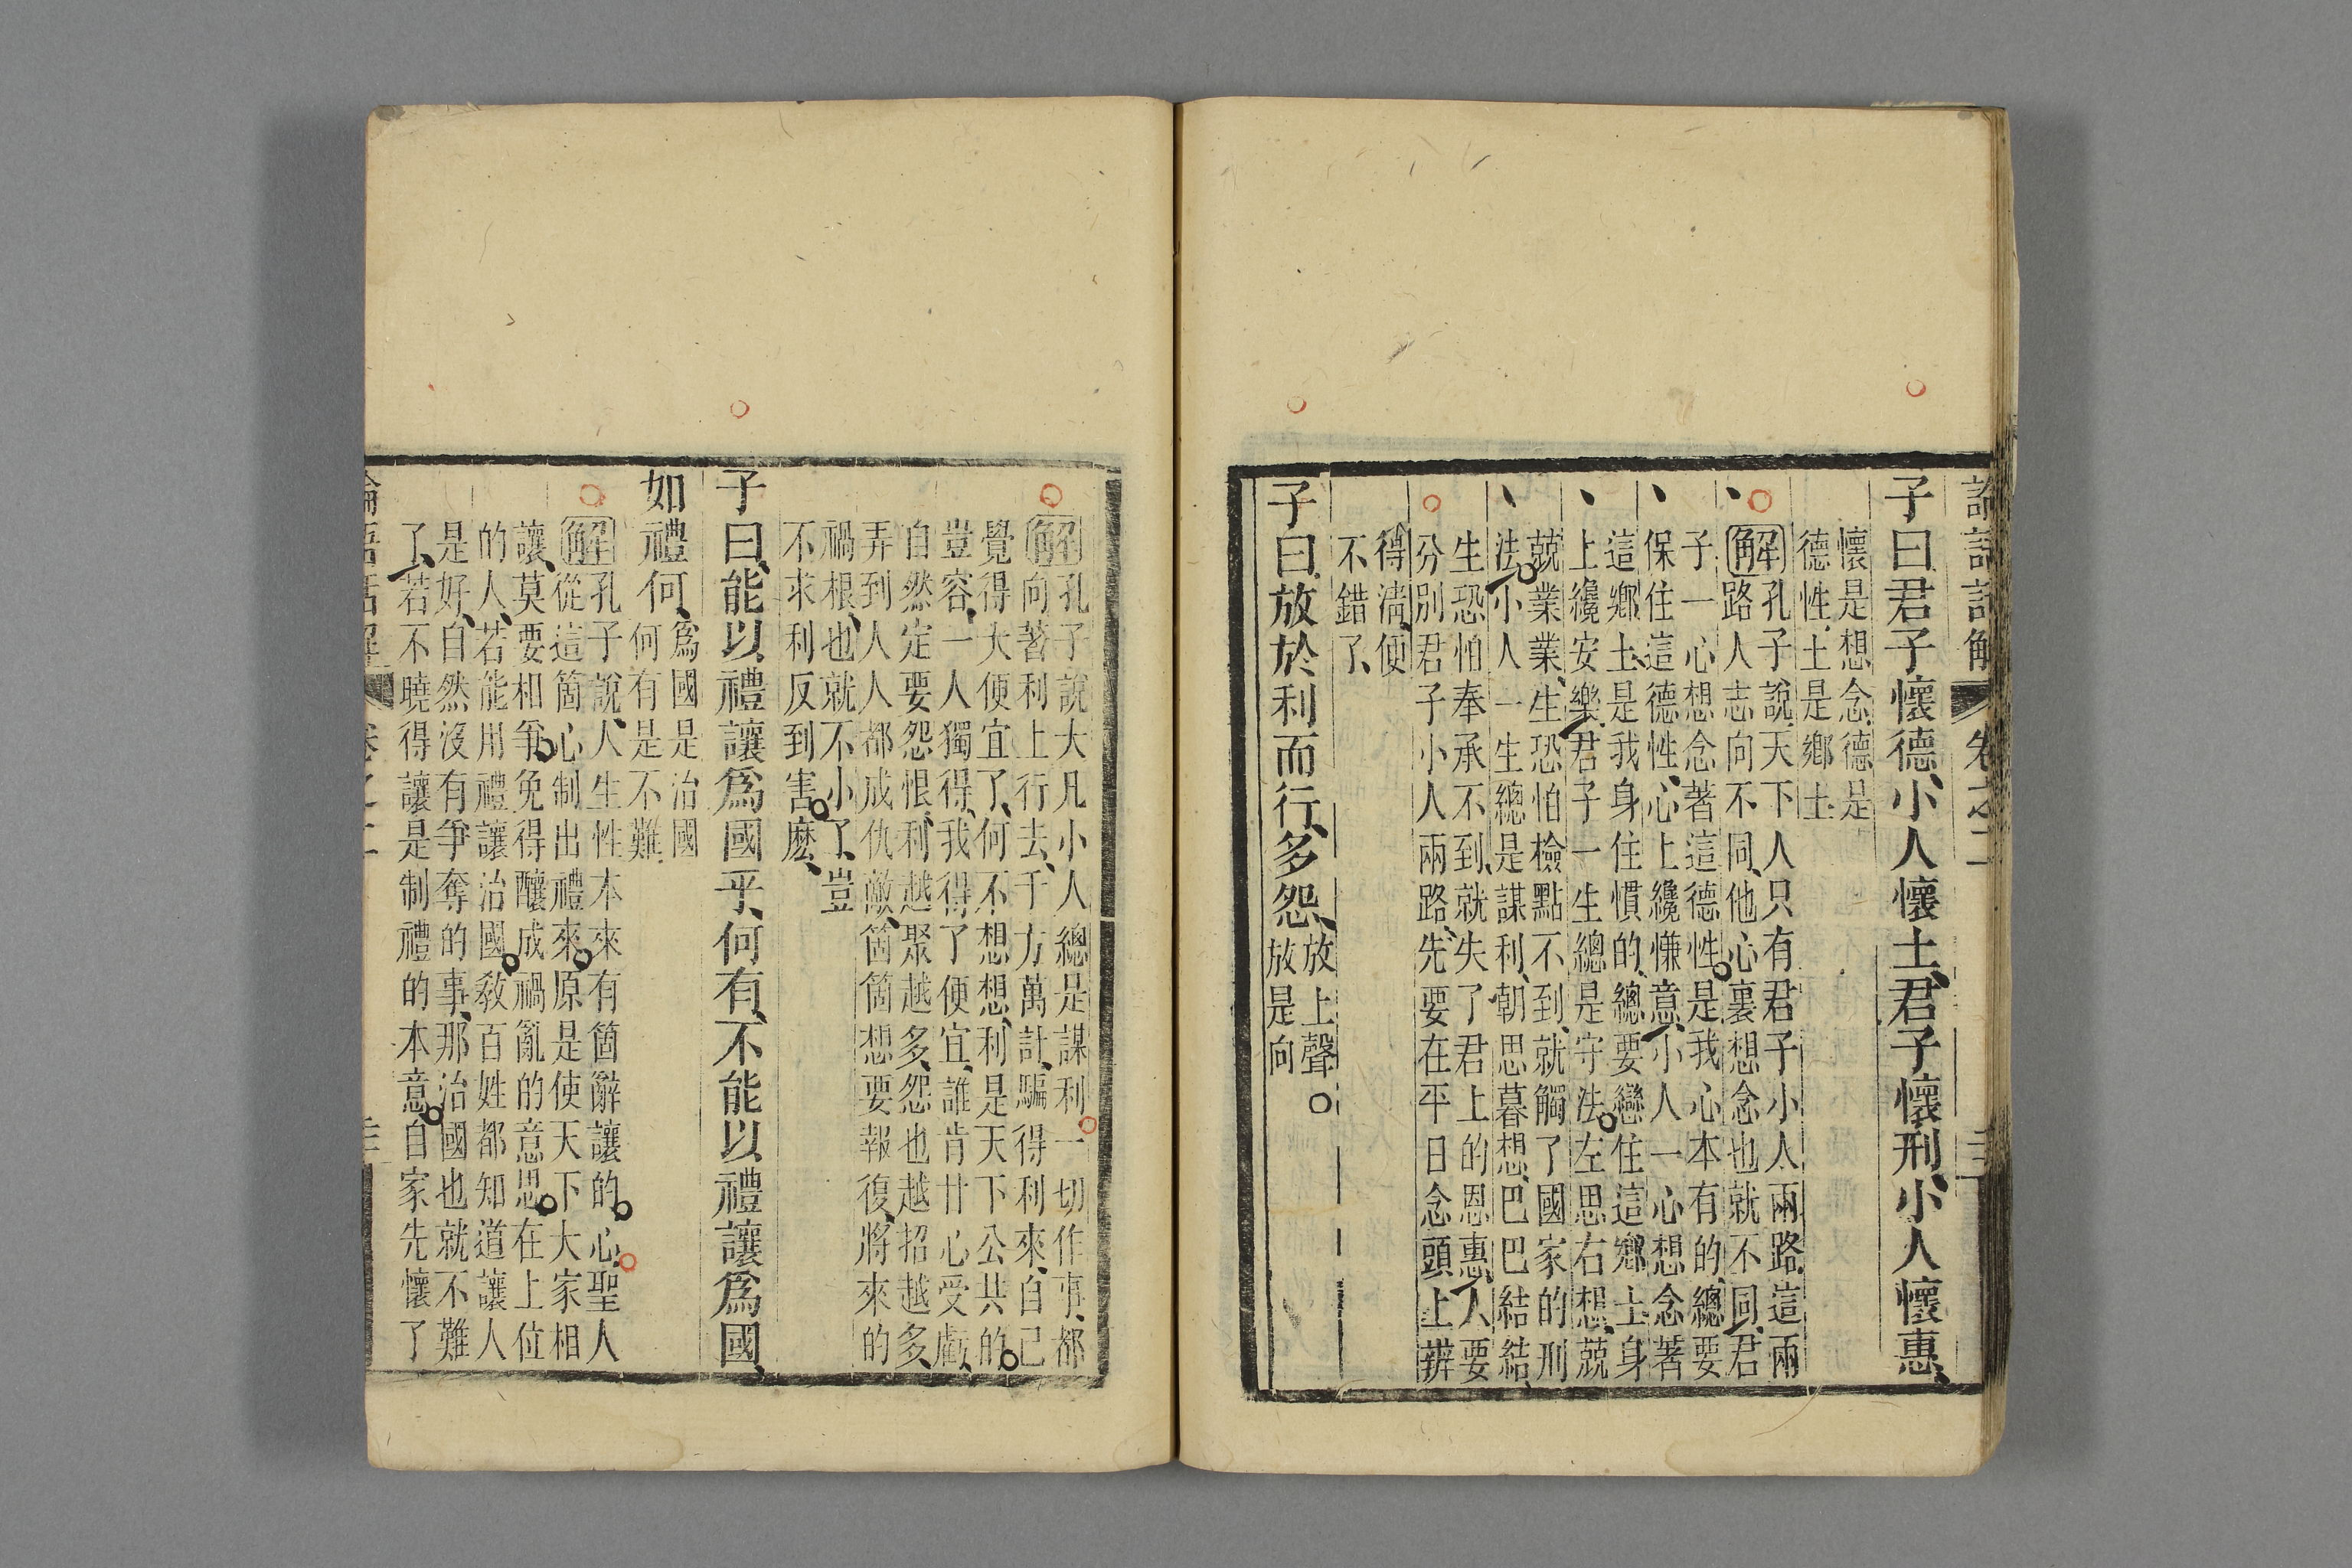 子曰君子懷德、小人懷土、君子懷刑、小人懷惠、
懷是想念、德是
德性、土是鄉土
解孔子說、天下人只有君子小人兩路、這兩
路人志向不同、他心裏想念也就不同、君
子一心想念著這德性、是我心本有的、總要
保住這德性、心上纔慊意、小人一心想念著
這鄉土、是我身住慣的、總要戀住這鄉土、身
上纔安樂、君子一生總是守法、左思右想、兢
兢業業、生恐怕檢點不到、就觸了國家的刑
法、小人一生總是謀利、朝思暮想、巴巴結結、
生恐怕奉承不到、就失了君上的恩惠、人要
分別君子小人兩路、先要在平日念頭上辨
得清、便
不錯了、
子曰、放於利而行、多怨、
放上聲○
放是向
解孔子說大凡小人總是謀利、一切作事、都
向著利上行去、千方萬計、騙得利來、自己
覺得大便宜了、何不想想、利是天下公共的、
豈容一人獨得、我得了便宜、誰肯甘心受虧、
自然定要怨恨、利越聚越多、怨也越招越多、
弄到人人都成仇敵、箇箇想要報復、將來的
禍根、也就不小了、豈
不求利反到害麼、
子曰、能以禮讓爲國乎、何有、不能以禮讓爲國、
如禮何、
爲國是治國
何有是不難
解孔子說、人生性本來有箇辭讓的心、聖人
從這箇心制出禮來、原是使天下大家相
讓、莫要相爭、免得釀成禍亂的意思、在上位
的人、若能用禮讓治國、教百姓都知道讓人
是好、自然沒有爭奪的事、那治國也就不難
了、若不曉得讓是制禮的本意、自家先懷了